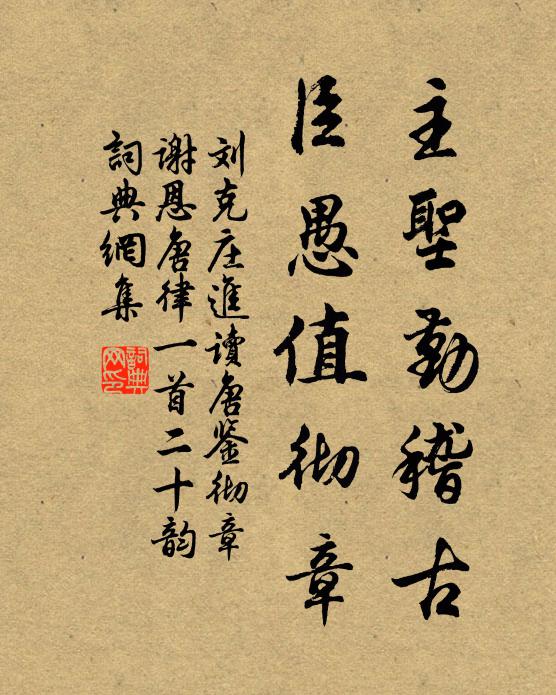 主聖勤稽古
臣愚值彻章
刘克庄進讀唐鉴彻章
謝恩唐律一首二十韵
詞典網集
詞典
网印